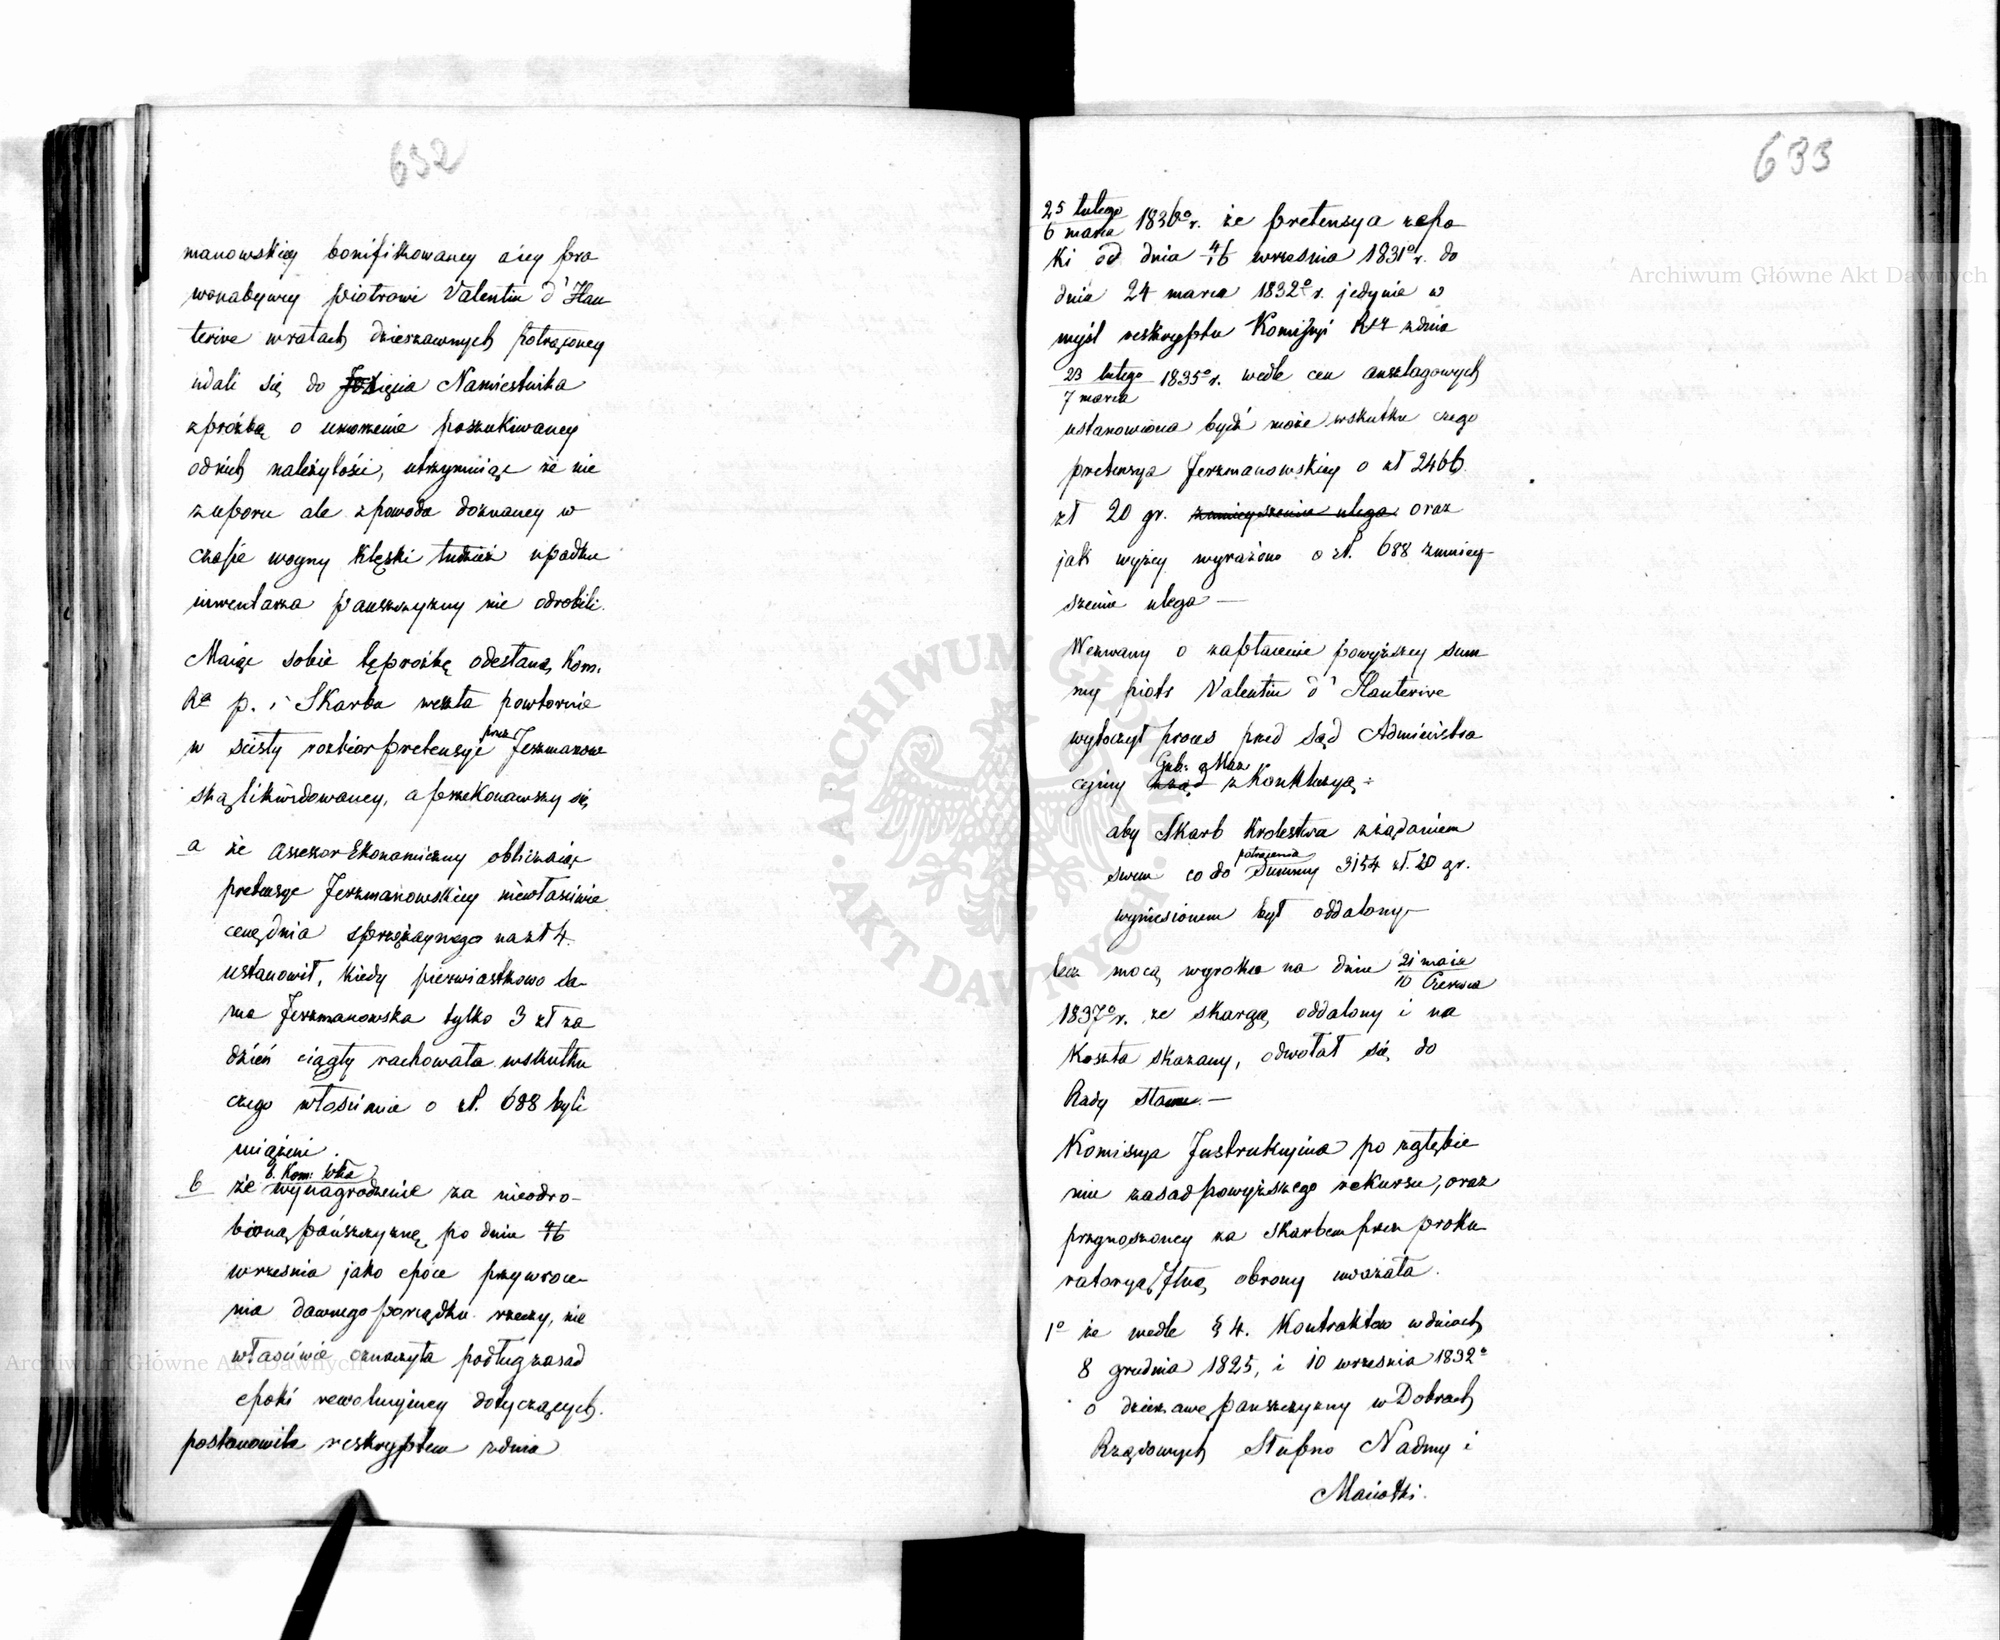 632
manowskiey bonifikowaney aiey pra
wonabywcy piotrowi Valentin d' Hau
terive wratach dzierzawnych potrąconey
udali się do Xięcia Namiestnika
zprożbą o umorzenie poszukiwaney
odnich należytości, utrzymuiąc że nie
zuporu ale zpowodu doznaney w
czasie woyny klęski tudzież upadku
inwentarza pańszczyzny nie odrobili.
Maiąc sobie tęprożbę odesłaną Kom.
Rz p. i Skarbu weszła powtornie
w ścisły rozbior pretensye przez Jerzmanow
ską likwidowaney, a przekonawszy się
a że assessor Ekonomiczny obliczaiąc
pretensye Jerzmanowskiey niewłaściwie
cenę dnia sprzężaynego na zł 4.
ustanowił, kiedy pierwiastkowo sa-
ma Jerzmanowska tylko 3 zł za
dzień ciągły rachowała wskutku
czego włościanie o zł. 688 byli
uciążeni.
b że b. Kom: Wdzka
wynagrodzenie za nieodro-
bioną pańszczyznę po dniu 4/16
września jako epoce przywroce-
nia dawnego porządku rzeczy, nie
właściwie oznaczyła podług zasad
epoki rewolucyiney dotyczących.
postanowiła reskryptem zdnia
633
25 lutego
6 marca 1836º r. że pretensya zepo
ki od dnia 4/16 września 1831º r. do
dnia 24 marca 1832º r. jedynie w
myśl reskryptu Komissyi Rz zdnia
23 lutego
7 marca 1835º r. wedle cen anszlagowych
ustanowiona bydź może wskutku czego
pretensya Jerzmanowskiey o zł 2466
zł 20 gr. zmnieyszeniu ulega oraz
jak wyżey wyrażono o zł. 688 zmniey-
szeniu ulega —
Wezwany o zapłacenie powyższey sum
my piotr Valentin d' Hauterive
wytoczył proces przed Sąd Administra
cyiny Gub: Maz z Konkluzyą ÷
aby Skarb Krolestwa zżądaniem
swem co do potrącenia Summy 3154 zł. 20 gr.
wyniesionem był oddalony —
lecz mocą wyroku na dniu 21 maia
10 Czerwca
1837º r. ze skargą oddalony i na
Koszta skazany, odwołał się do
Rady Stanu. —
Komissya Instrukcyina po zgłębie
niu zasad powyższego rekursu, oraz
przynoszoney za skarbem przez proku
ratoryą Jlną obrony uważała.
1º że wedle § 4. Kontraktow wdniach
8 grudnia 1825, i 10 września 1832º
o dzierzawę pańszczyzny w Dobrach
Rządowych Stubno Nadmy i
Maciołki.
Archiwum Główne Akt Dawnych
Archiwum Główne Akt Dawnych
ARCHIWUM GŁÓWNE AKT DAWNYCH